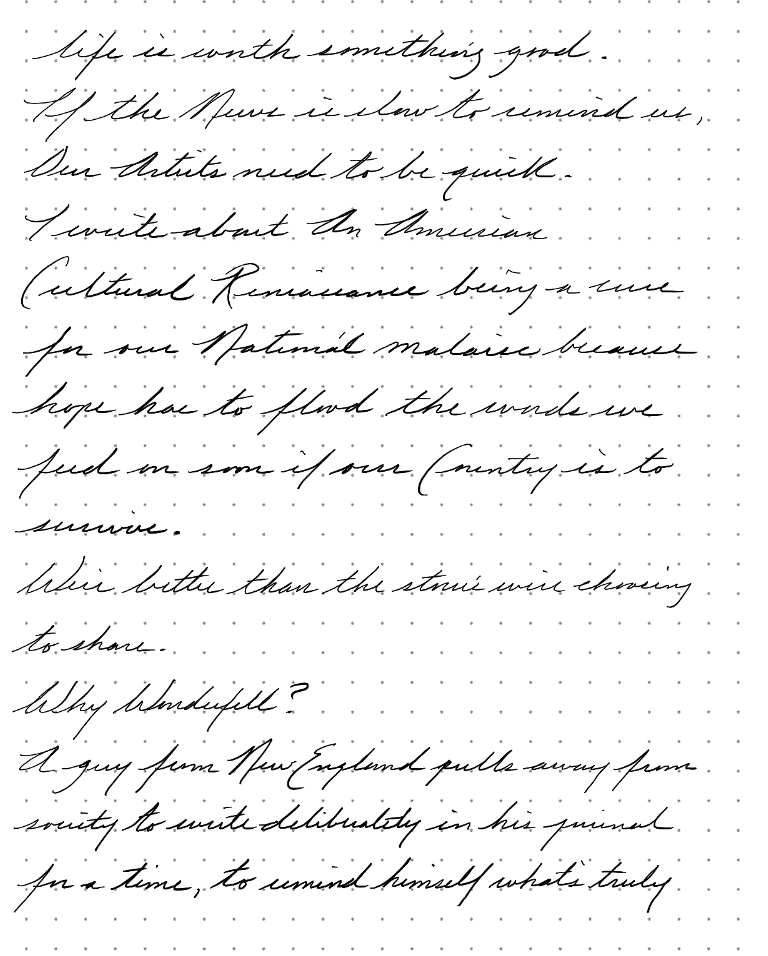 life is worth something good.
If the News is slow to remind us,
Our Artists need to be quick.
I write about An American
Cultural Renaissance being a cure
for our National malaise because
hope has to flood the words we
feed on soon if our Country is to
survive.
We're better than the stories we're choosing
to share.
Why Wonderfell?
A guy from New England pulls away from
society to write deliberately in his journal
for a time, to remind himself what's truly